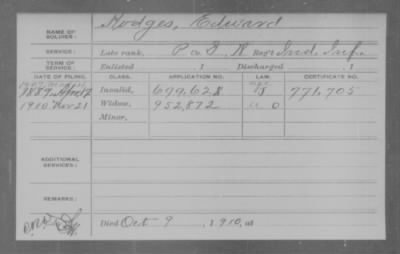 NAME OF SOLDIER: Hodges, Edward
SERVICE: Late rank, P Co. 8, N Reg't Ind. Inf.
TERM OF SERVICE: Enlisted , 1 Discharged , 1
DATE OF FILING. CLASS. APPLICATION NO. LAW. CERTIFICATE NO.
1907
1889 Apr 12 Invalid, 699,628 J 771,705
1910 Nov 21 Widow, 952,872 a 0
Minor,
ADDITIONAL SERVICES:
REMARKS:
Died Oct 9, 1910, at